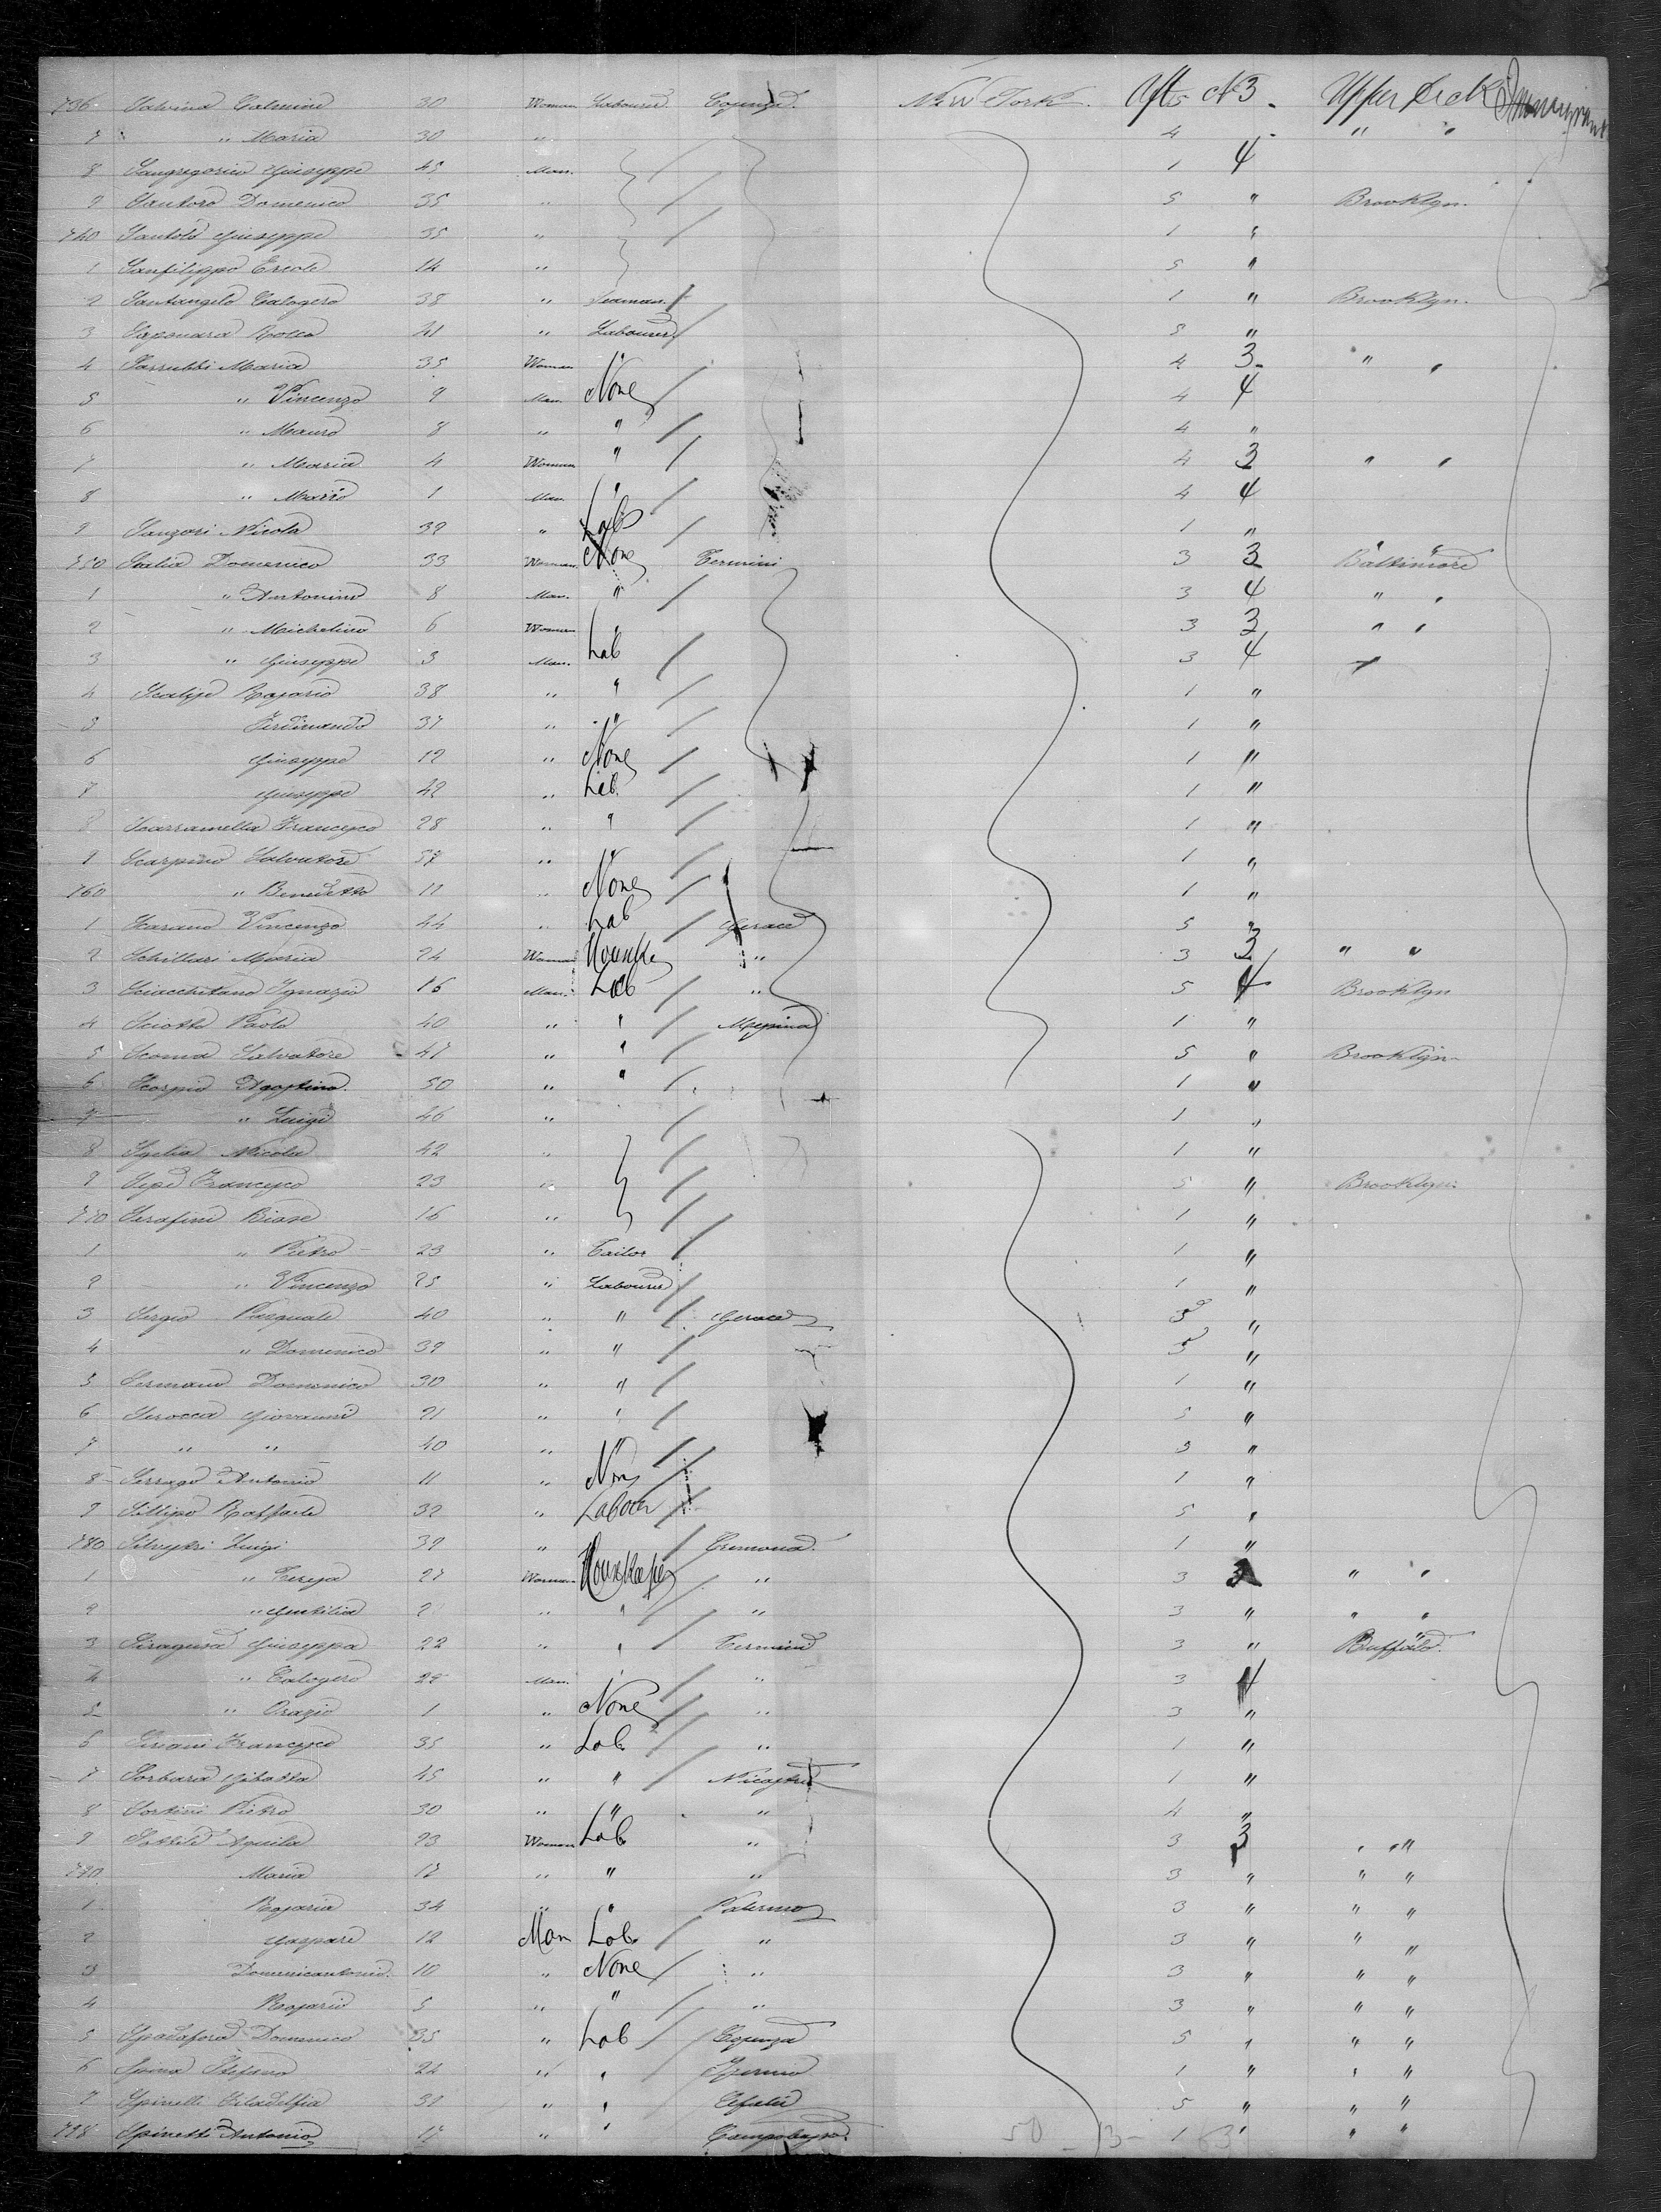 736 Salvina Calmine 30 Woman Labourer Cosenza New York Aft 5 3 Upper Deck Immigrant
7 " Maria 30 " 4 " " "
8 Sangregorio Giuseppe 45 Man. 1 4
9 Santoro Domenico 35 " 5 " Brooklyn.
740 Santolo Giuseppe 35 " 1 "
1 Sanfilippo Ercole 14 " 5 "
2 Santangelo Calogero 38 " Seaman. 1 " Brooklyn.
3 Rocco 41 " Labourer "
4 Sarrubbi Maria 35 Woman " 4 3 " "
5 " Vincenzo 9 Man. None 4 4
6 " Mauro 8 " " 4 "
7 " Maria 4 Woman " 4 3 " "
8 " Mario 1 Man. " 4 4
9 Sanzori Nicola 39 " Lab 1 "
750 Scalia Domenico 33 Woman. None Termini 3 3 Baltimore
1 " Antonino 8 Man. " 3 4 " "
2 " Michelino 6 Woman " 3 3 " "
3 " Giuseppe 3 Man. Lab 3 4
4 Scalise Rosario 38 " " 1 "
5 Ferdinando 37 " " 1 "
6 Giuseppe 12 " None 1 "
7 Giuseppe 42 " Lab. 1 "
8 Scarramella Francesco 28 " " 1 "
9 Scarpino Salvatore 57 " " 1 "
760 " Benedetto 11 " None 1 "
1 Scarano Vincenzo 44 " Lab Gerace 5 "
2 Schillari Maria 24 Woman " 3 3 " "
3 Sciacchitano Ignazio 16 Man. Lab " 5 4 Brooklyn
4 Sciotto Paolo 40 " " Messina 1 "
5 Scoma Salvatore 47 " " 5 " Brooklyn
6 Scorpio Agostino. 50 " " 1 "
7 " Luigi 46 " 1 "
8 Nicola 42 " 1 "
9 Sepe Francesco 23 " 5 " Brooklyn.
770 Serafini Biase 16 " 1 "
1 " Pietro 23 " Tailor 1 "
2 " Vincenzo 25 " Labourer 1 "
3 Sergio Pasquale 40 " " Gerace "
4 " Domenico 39 " " "
5 Sermano Domenico 30 " " 1 "
6 Serocca Giovanni 21 " " 5 "
7 " " 40 " " "
8 Antonio 11 " Non 1 "
9 Raffaele 32 " Labour 5 "
780 Silvestri Luigi 39 " Cremona. 1 "
1 " Teresa 27 Woman. Housekeeper " 3 3 " "
2 " 2 " " " 3 " " "
3 Siragusa Giuseppa 22 " " Termini 3 " Buffalo.
4 " Calogero 28 Man. " " 3 4
5 " Orazio 1 " None " 3 "
6 Francesco 35 " Lab. " 1 "
7 Sorbara 45 " " Nicastro 1 "
8 Sortini Pietro 30 " " " 4 "
9 Sottile Aquila 23 Woman Lab " 3 3 " "
790 Maria 17 " " " 3 " " "
1 Rosaria 34 " " Palermo 3 " " "
2 Gaspare 12 Man Lab. " 3 " " "
3 Domenicantonio. 10 " None " 3 " " "
4 Rosario 5 " " " 3 " " "
5 Spadafora Domenico 35 " Lab Cosenza 5 " " "
6 Spina Stefano 24 " " 1 " " "
7 Spinelli Filadelfia 31 " " Cefalù 5 " " "
798 Spinetti Antonio 17 " " Campobasso. 1 " " "
50 - 13 - 63